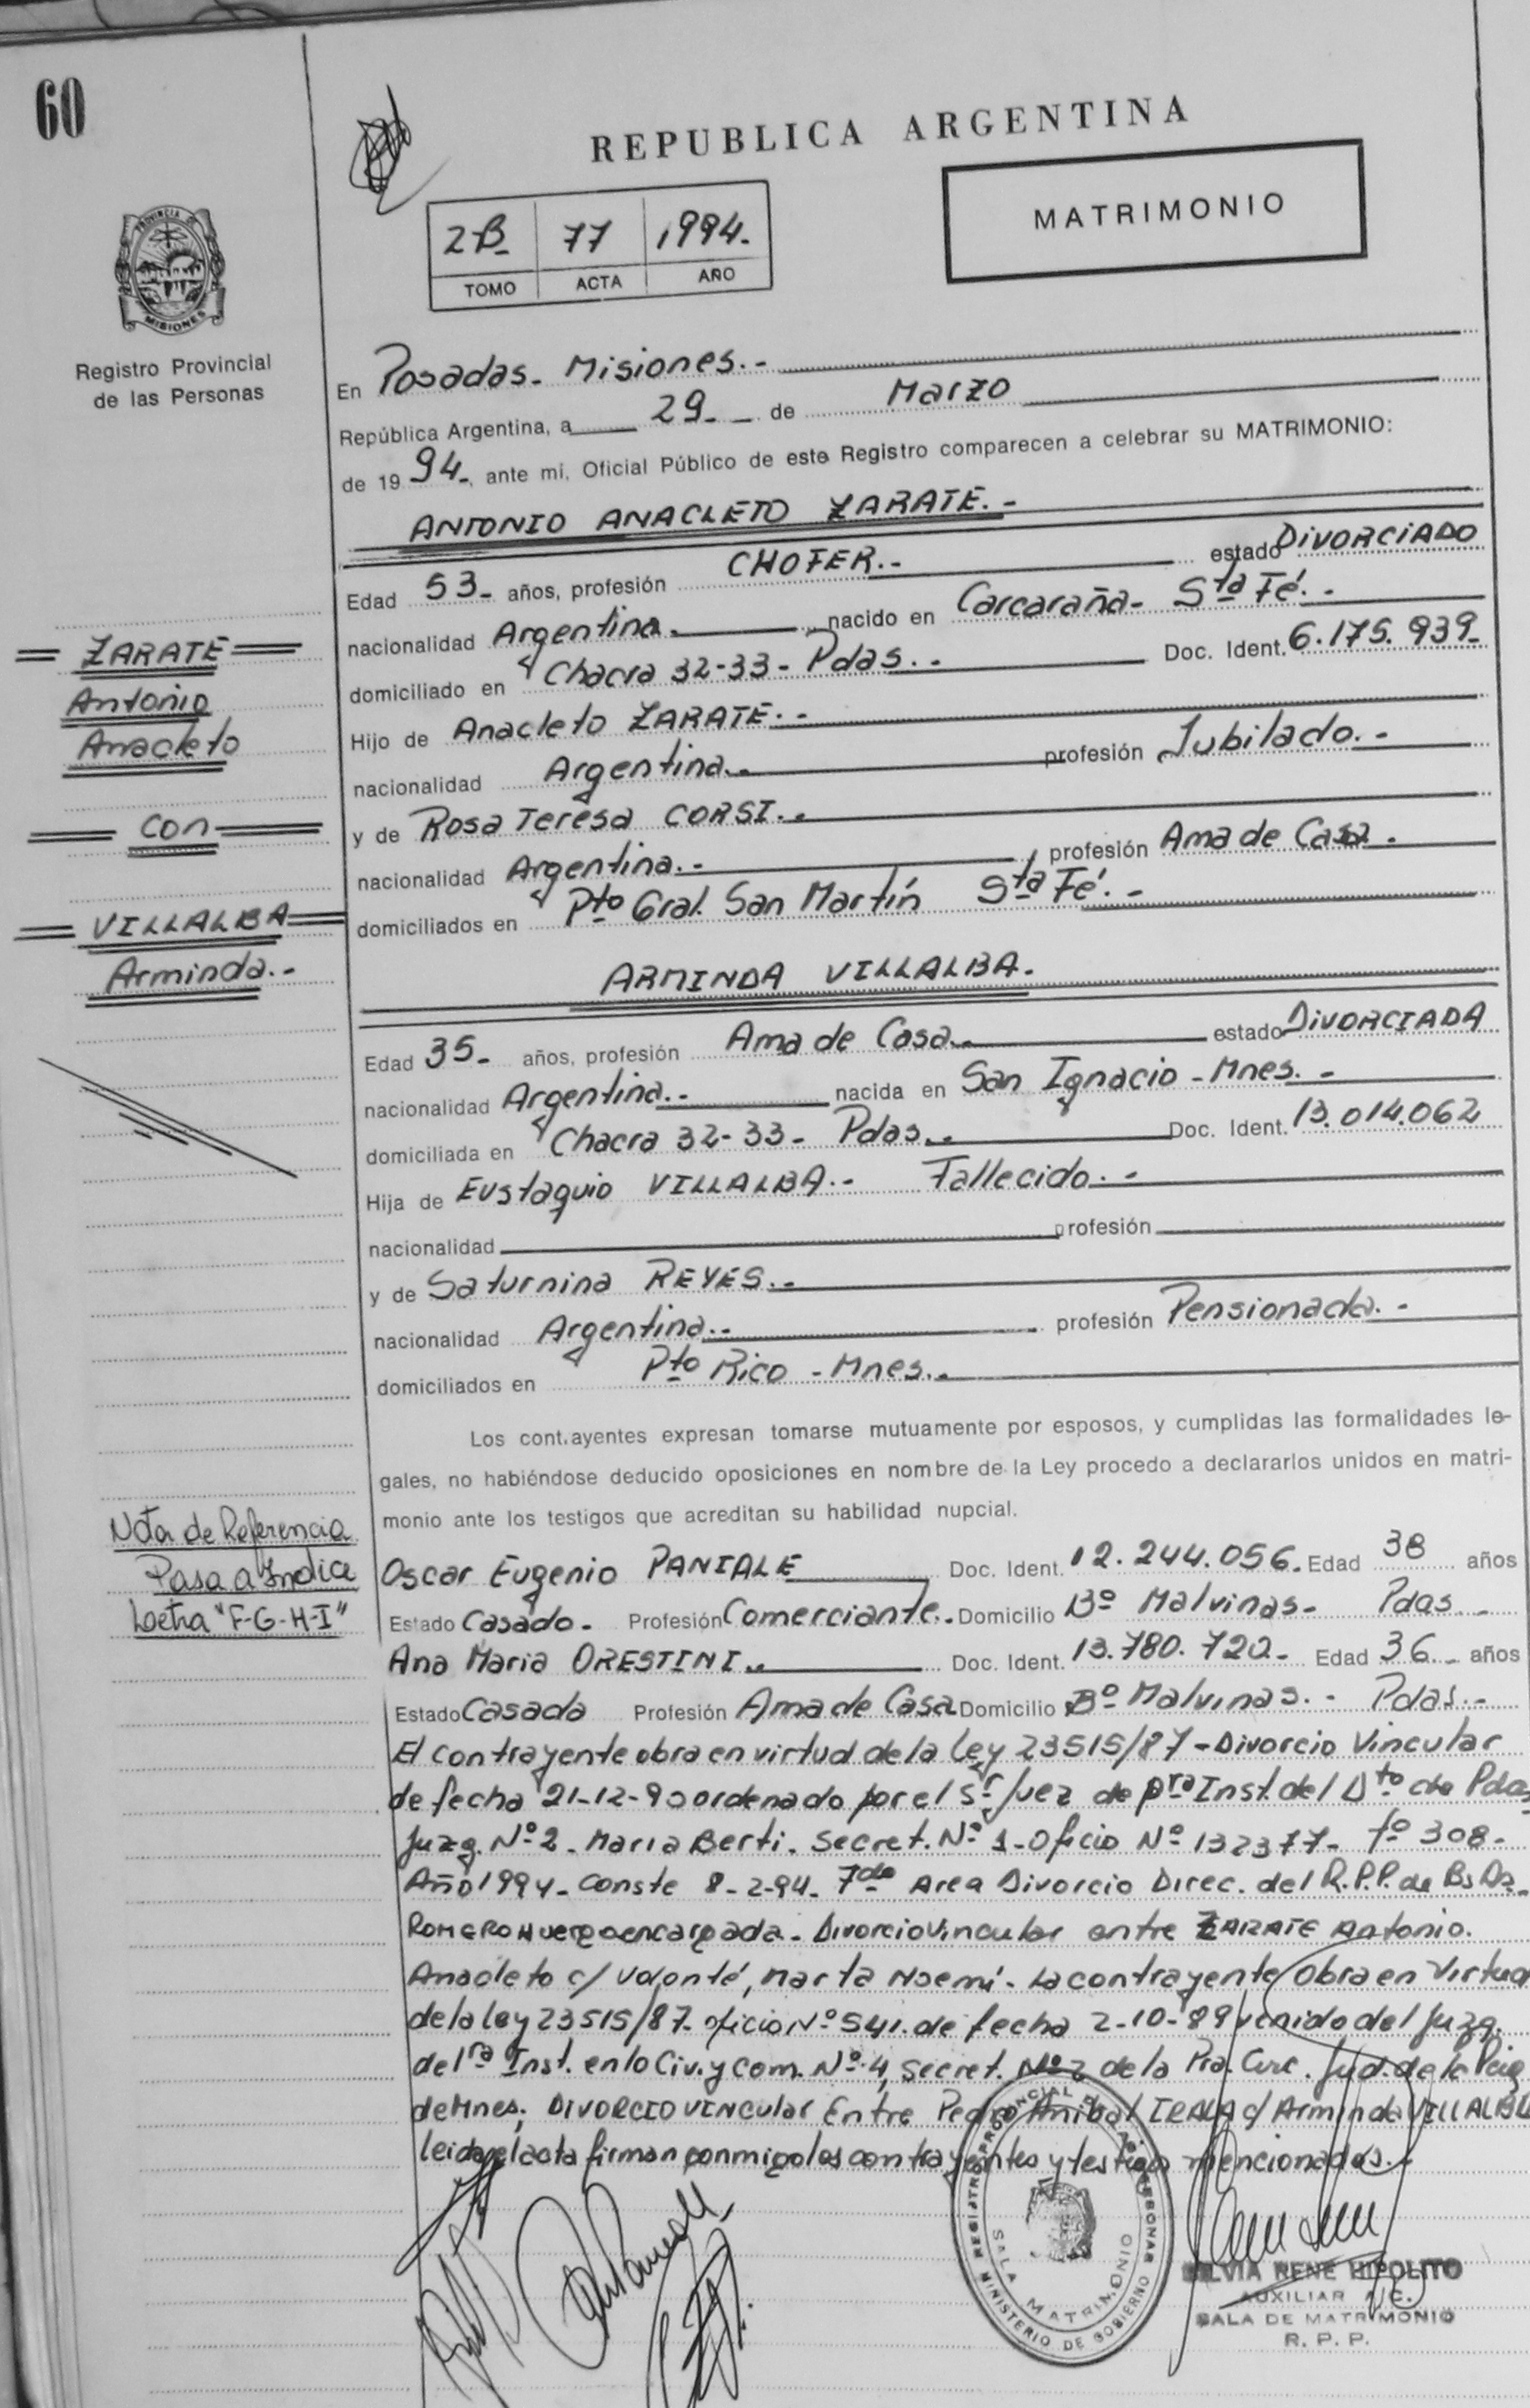 60
REPUBLICA ARGENTINA
MATRIMONIO
2B- 77 1994.-
TOMO ACTA AÑO
PROVINCIA DE
MISIONES
Registro Provincial
de las Personas
En Posadas - Misiones.-
República Argentina, a 29- de Marzo
de 19 94-, ante mi, Oficial Público de este Registro comparecen a celebrar su MATRIMONIO:
ANTONIO ANACLETO ZARATE.-
Edad 53- años, profesión CHOFER.- estado DIVORCIADO
nacionalidad Argentina.- nacido en Carcaraña - Sta Fé.-
domiciliado en Chacra 32-33 - Pdas.- Doc. Ident. 6.175.939-
Hijo de Anacleto ZARATE.-
nacionalidad Argentina.- profesión Jubilado.-
y de Rosa Teresa CORSI.-
nacionalidad Argentina.- profesión Ama de Casa.-
domiciliados en Pto Gral. San Martín Sta Fé.-
ZARATE
Antonio
Anacleto
con
VILLALBA
Arminda.-
ARMINDA VILLALBA.-
Edad 35- años, profesión Ama de Casa.- estado DIVORCIADA
nacionalidad Argentina.- nacida en San Ignacio - Mnes.-
domiciliada en Chacra 32-33 - Pdas.- Doc. Ident. 13.014.062
Hija de Eustaquio VILLALBA.- Fallecido.-
nacionalidad profesión
y de Saturnina REYES.-
nacionalidad Argentina.- profesión Pensionada.-
domiciliados en Pto Rico - Mnes.-
Los contrayentes expresan tomarse mutuamente por esposos, y cumplidas las formalidades le-
gales, no habiéndose deducido oposiciones en nombre de la Ley procedo a declararlos unidos en matri-
monio ante los testigos que acreditan su habilidad nupcial.
Nota de Referencia
Pasa a Indice
Letra "F-G-H-I"
Oscar Eugenio PANIALE Doc. Ident. 12.244.056. Edad 38 años
Estado Casado- Profesión Comerciante.- Domicilio Bº Malvinas- Pdas.-
Ana Maria ORESTINI.- Doc. Ident. 13.780.720- Edad 36- años
Estado Casada Profesión Ama de Casa Domicilio Bº Malvinas.- Pdas.-
El contrayente obra en virtud de la Ley 23515/87 - Divorcio Vincular
de fecha 21-12-90 ordenado por el Sr. Juez de Pra Inst. del Dto de Pdas
Juzg. Nº 2 - Maria Berti. Secret. Nº 1 - Oficio Nº 132377 - fº 308-
Año 1994 - conste 8-2-94- Area Divorcio Direc. del R.P.P. de Bs As-
ROMERO encargada - Divorcio Vincular entre ZARATE Antonio
Anacleto c/ Volonté, Marta Noemí - La contrayente Obra en Virtud
de la ley 23515/87. oficio Nº 541. de fecha 2-10-89 venido del Juzg.
de 1ra Inst. en lo Civ. y Com. Nº 4, Secret. Nº 2 de la Pra. Circ. Jud. de la Pcia
de Mnes; DIVORCIO VINCULAR Entre Pedro Anibal IRALA c/ Arminda VILLALBA
leida el acta firman conmigo los contrayentes y testigos mencionados.-
REGISTRO PROVINCIAL DE LAS PERSONAS
SALA MATRIMONIO
MINISTERIO DE GOBIERNO
SILVIA RENE HIPOLITO
AUXILIAR
SALA DE MATRIMONIO
R. P. P.